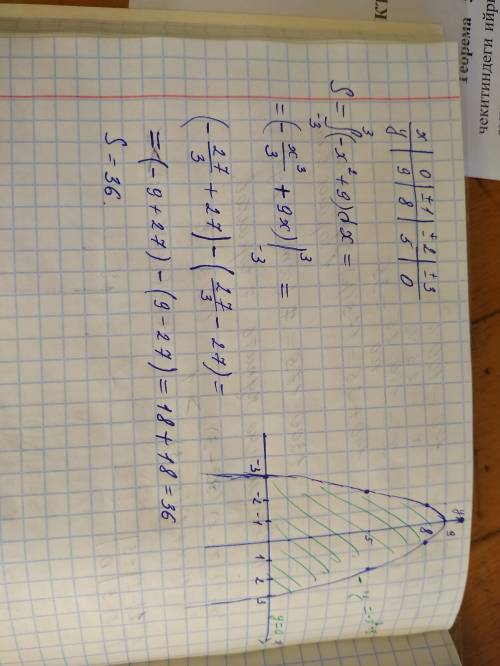 x | 0 | ±1 | ±2 | ±3
y | 9 | 8 | 5 | 0
S = ∫₋₃³ (-x² + 9) dx =
= (-x³/3 + 9x) |₋₃³ =
(-27/3 + 27) - (27/3 - 27) =
= (-9 + 27) - (9 - 27) = 18 + 18 = 36
S = 36.
y
9
8
5
-3 -2 -1 1 2 3
y=0
Теорема
чекитиндеги